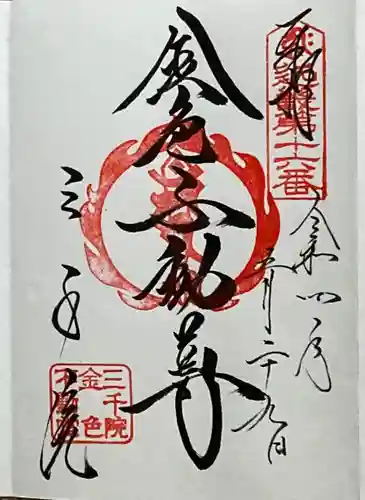 奉拝
第十六番
令和四年
五月二十九日
金色不動尊
三千院
三千院
金色
不動